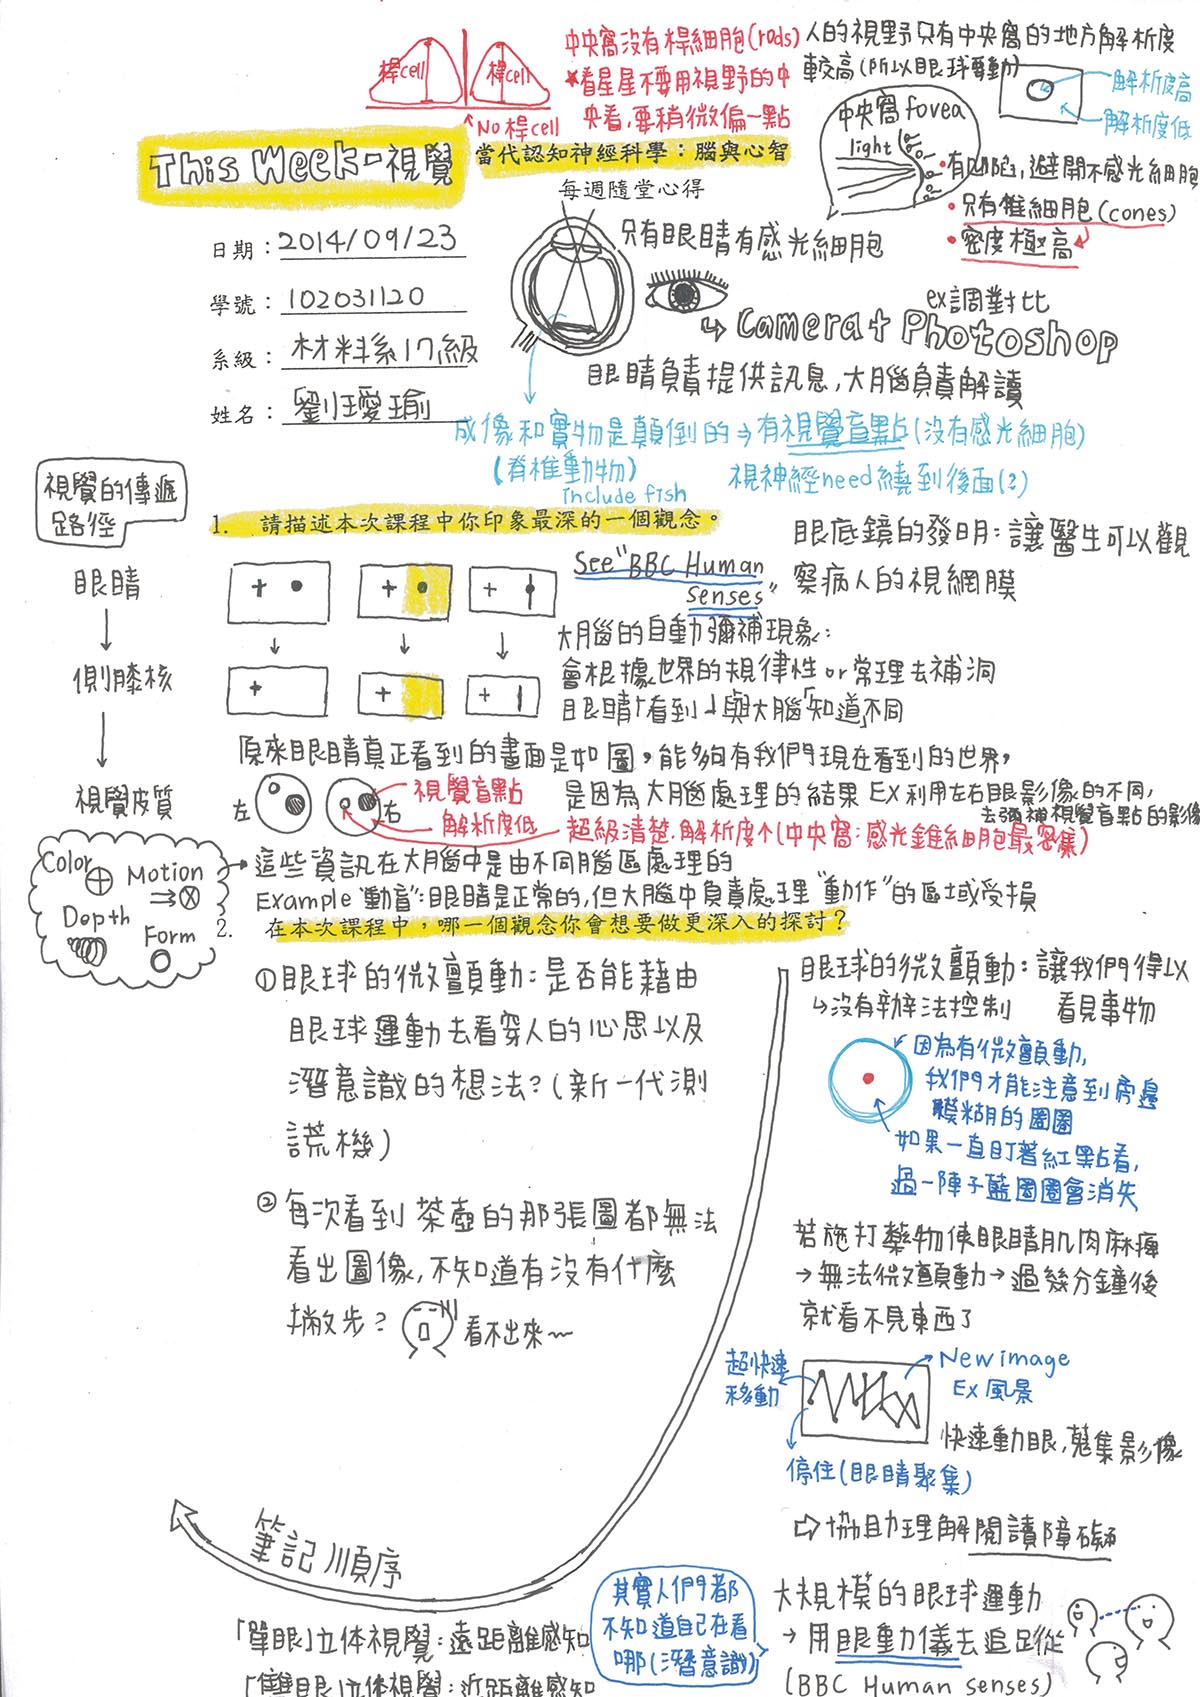 桿cell
桿cell
No 桿cell
中央窩沒有桿細胞(rods)
★看星星不要用視野的中
央看,要稍微偏一點
人的視野只有中央窩的地方解析度
較高(所以眼球要動)
解析度高
解析度低
中央窩 fovea
light
•有凹陷,避開不感光細胞
•只有錐細胞(cones)
•密度極高
This Week-視覺
當代認知神經科學:腦與心智
每週隨堂心得
日期:2014/09/23
學號:102031120
系級:材料系17級
姓名:劉璦瑜
只有眼睛有感光細胞
ex調對比
↳ Camera + Photoshop
眼睛負責提供訊息,大腦負責解讀
成像和實物是顛倒的→有視覺盲點(沒有感光細胞)
(脊椎動物)
include fish
視神經need繞到後面(?)
視覺的傳遞
路徑
眼睛
側膝核
視覺皮質
1. 請描述本次課程中你印象最深的一個觀念。
See "BBC Human
Senses"
眼底鏡的發明:讓醫生可以觀
察病人的視網膜
大腦的自動彌補現象:
會根據世界的規律性or常理去補洞
眼睛「看到」與大腦「知道」不同
原來眼睛真正看到的畫面是如圖,能夠有我們現在看到的世界,
左
右
視覺盲點
解析度低
是因為大腦處理的結果 EX利用左右眼影像的不同,
去彌補視覺盲點的影像
超級清楚,解析度↑(中央窩:感光錐細胞最密集)
Color
Motion
Depth
Form
→這些資訊在大腦中是由不同腦區處理的
Example "動盲":眼睛是正常的,但大腦中負責處理"動作"的區域受損
2. 在本次課程中,哪一個觀念你會想要做更深入的探討?
①眼球的微顫動:是否能藉由
眼球運動去看穿人的心思以及
潛意識的想法?(新一代測
謊機)
②每次看到茶壺的那張圖都無法
看出圖像,不知道有沒有什麼
撇步?
看不出來~
眼球的微顫動:讓我們得以
看見事物
↳沒有辦法控制
因為有微顫動,
我們才能注意到旁邊
模糊的圈圈
如果一直盯著紅點看,
過一陣子藍圈圈會消失
若施打藥物使眼睛肌肉麻痺
→無法微顫動→過幾分鐘後
就看不見東西了
超快速
移動
New image
Ex 風景
快速動眼,蒐集影像
停住(眼睛聚集)
⇨協助理解閱讀障礙
筆記順序
其實人們都
不知道自己在看
哪(潛意識)
大規模的眼球運動
→用眼動儀去追蹤
(BBC Human senses)
「單眼」立體視覺:遠距離感知
「雙眼」立體視覺:近距離感知